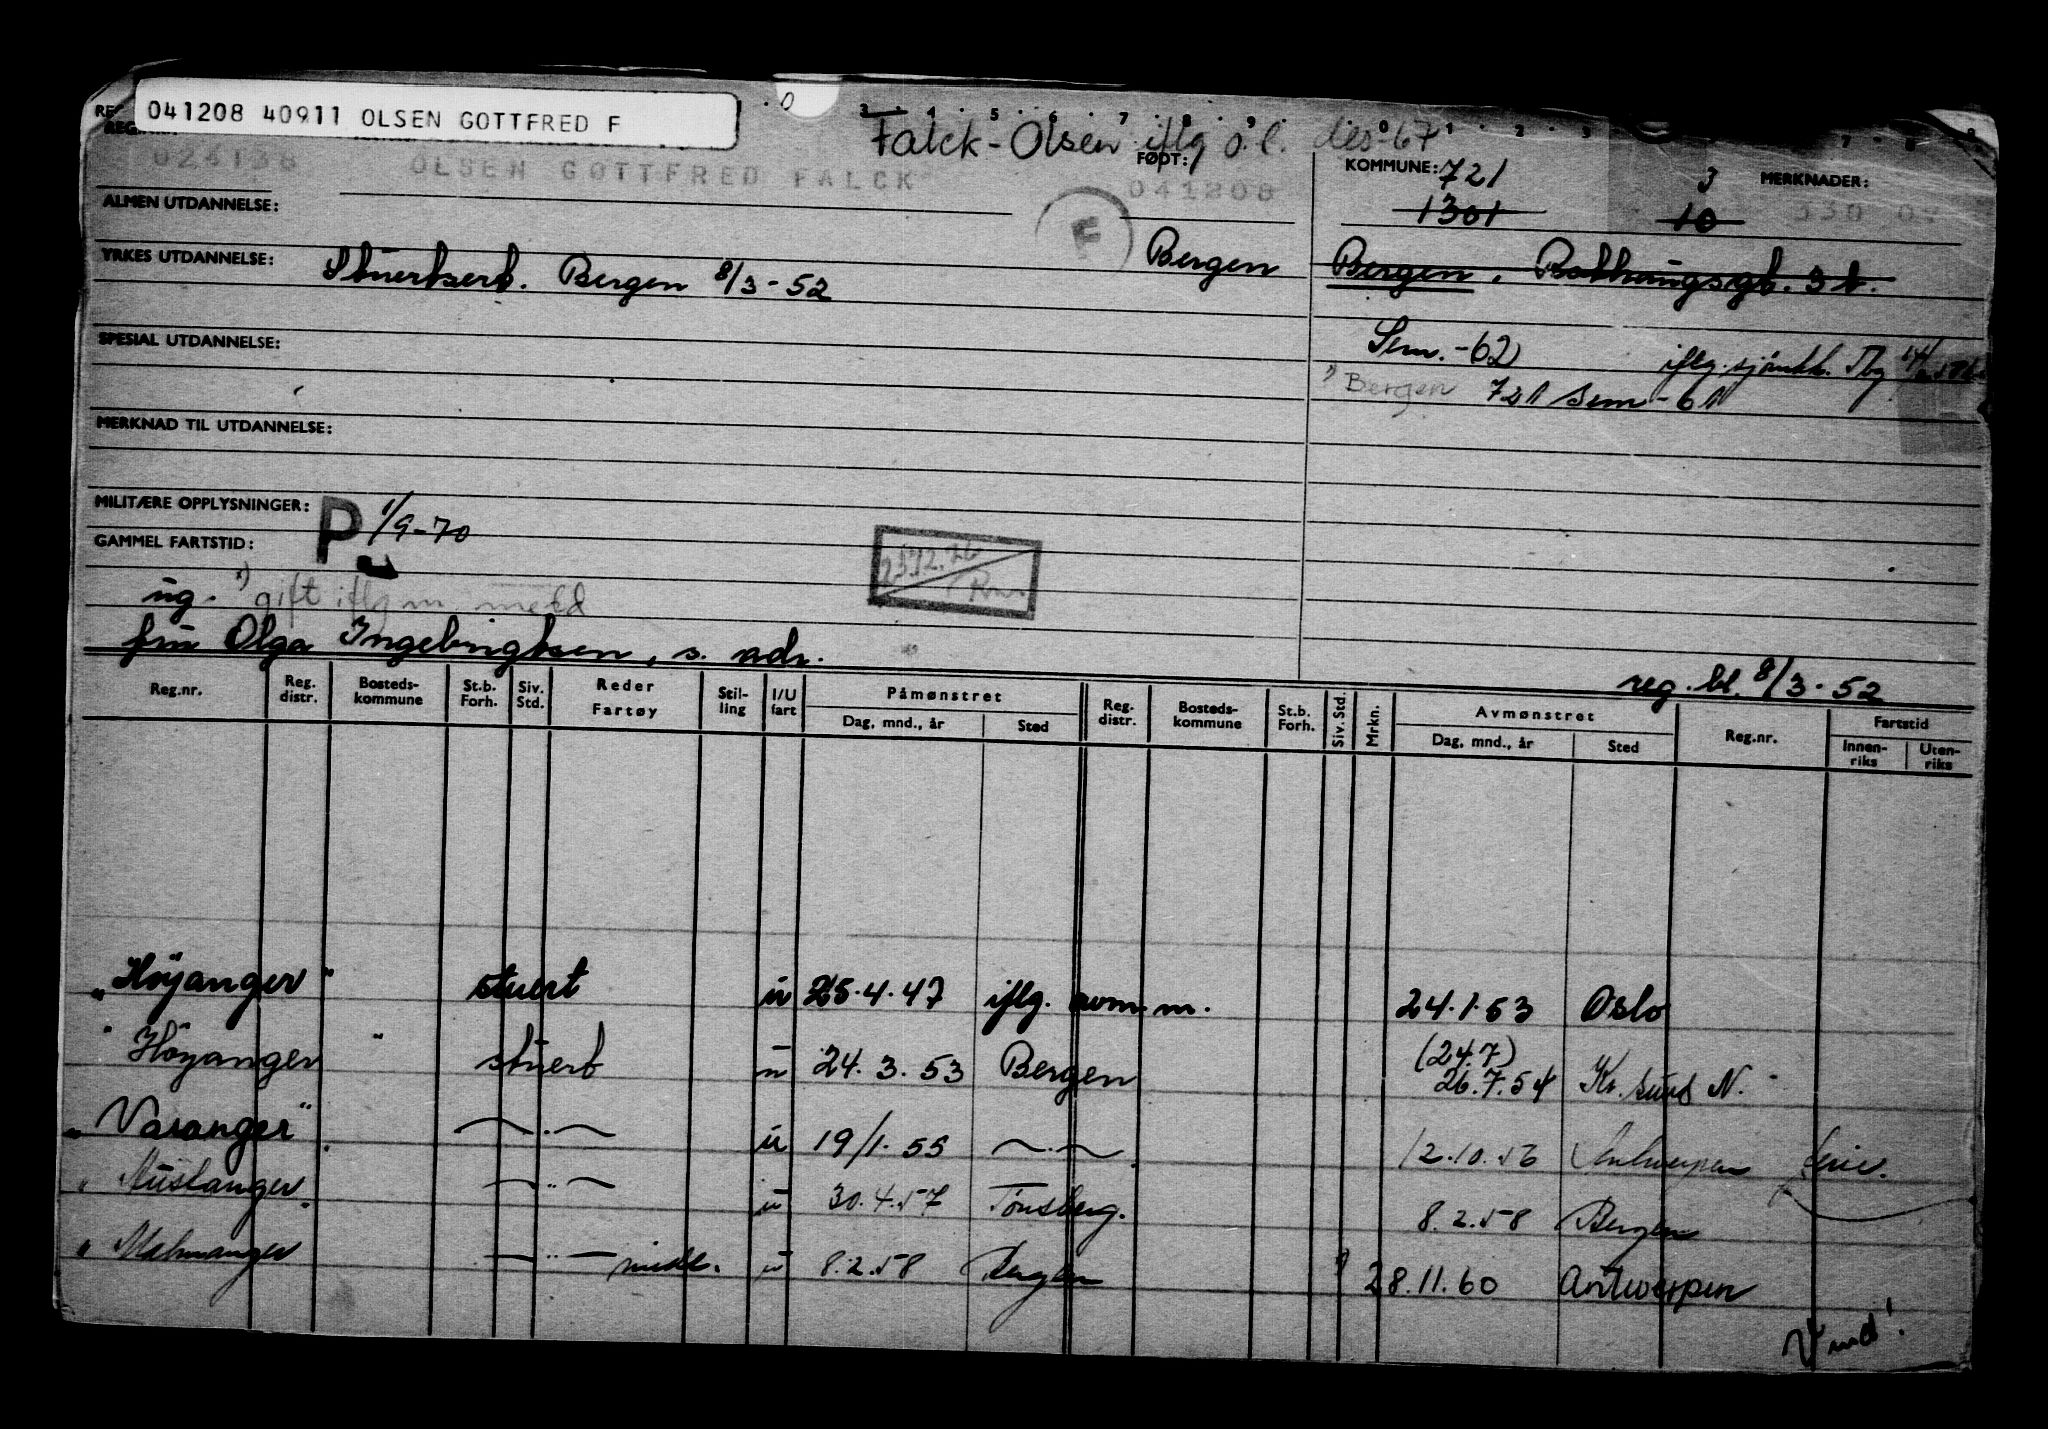 041208 40911 OLSEN GOTTFRED F
0 3 4 5 6 7 8 9 0 1 2 3
Falck-Olsen iflg ø.l. des-67
024138 OLSEN GOTTFRED FALCK FØDT: 041208 KOMMUNE: 721 3 MERKNADER:
1301 10
ALMEN UTDANNELSE: F
YRKES UTDANNELSE: Stuertsert. Bergen 8/3-52 Bergen Bergen,
Sem.-62)
SPESIAL UTDANNELSE: iflg.
Bergen 721 Sem-61
MERKNAD TIL UTDANNELSE:
MILITÆRE OPPLYSNINGER: P 1/9-70
GAMMEL FARTSTID: 23.12.76
ug. gift iflg m meld
Olga Ingebrigtsen, s. adr.
reg. bl. 8/3-52
Reg.nr. Reg. distr. Bosteds-kommune St.b. Forh. Siv. Std. Reder Fartøy Stil-ling I/U fart Påmønstret Dag, mnd., år Sted Reg. distr. Bosteds-kommune St.b. Forh. Siv. Std. Mrkn. Avmønstret Dag, mnd., år Sted Reg.nr. Fartstid Innen-riks Uten-riks
"Høyanger" stuert u 25.4.47 iflg. avm.m. 24.1.53 Oslo
"Høyanger" stuert u 24.3.53 Bergen (24.7) 26.7.54 Kr.sund N.
"Varanger" —"— u 19/1.55 —"— 12.10.56 Antwerpen ferie.
"Austanger —"— u 30.4.57 Tønsberg. 8.2.58 Bergen
"Malmanger —"— midl. u 8.2.58 Bergen 28.11.60 Antwerpen
Vend!